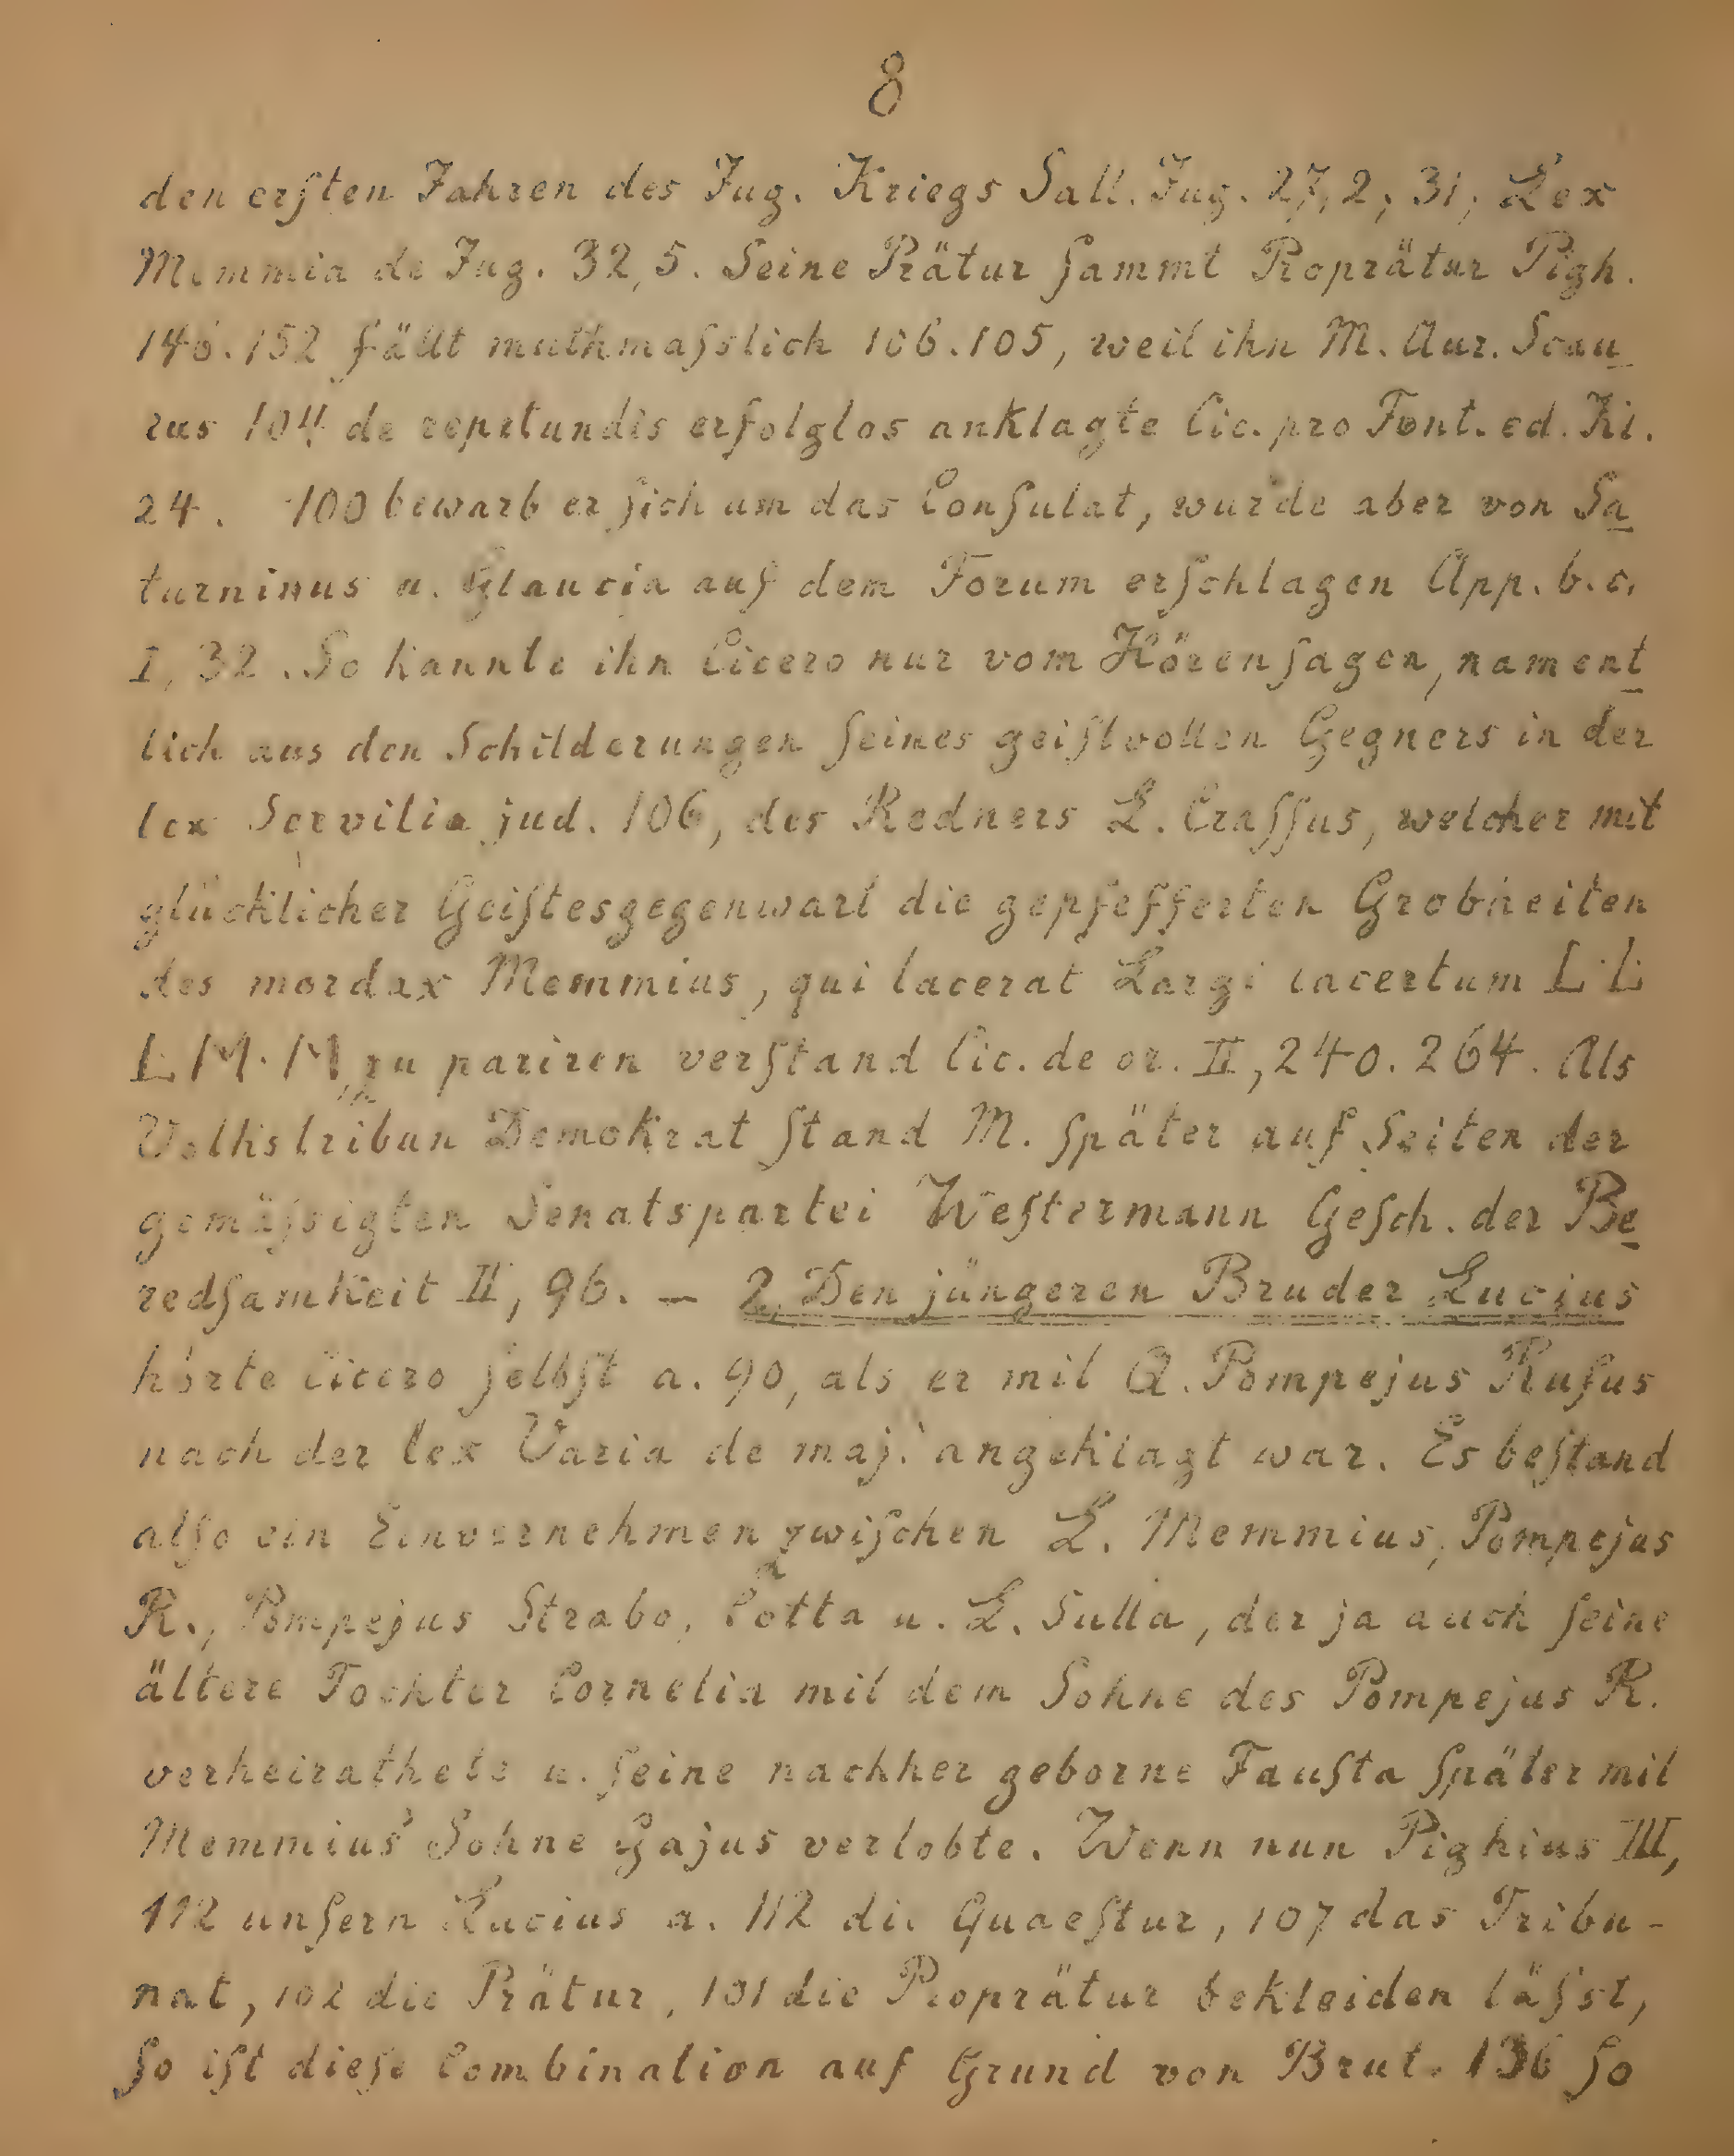 8
den erſten Jahren des Jug. Kriegs Sall. Jug. 27,2; 31; Lex
Memmia de Jug. 32,5. Seine Prätur ſammt Proprätur Pigh.
146.152 fällt muthmaſslich 106.105, weil ihn M. Aur. Scau_
rus 104 de repetundis erfolglos anklagte Cic. pro Font. ed. Kl.
24. 100 bewarb er ſich um das Conſulat, wurde aber von Sa_
turninus u. Glaucia auf dem Forum erſchlagen App. b.c.
I, 32. So kannte ihn Cicero nur vom Hörenſagen, nament_
lich aus den Schilderungen ſeines geiſtvollen Gegners in der
lex Servilia jud. 106, des Redners L. Craſſus, welcher mit
glücklicher Geiſtesgegenwart die gepfefferten Grobheiten
des mordax Memmius, qui lacerat Largi lacertum L. L.
L. M. M, zu pariren verſtand Cic. de or. II, 240. 264. Als
Volkstribun Demokrat ſtand M. ſpäter auf Seiten der
gemäſsigten Senatspartei Weſtermann Geſch. der Be_
redſamkeit II, 96. — 2, Den jüngeren Bruder Lucius
hörte Cicero ſelbſt a. 90, als er mit Q. Pompejus Rufus
nach der lex Varia de maj. angeklagt war. Es beſtand
alſo ein Einvernehmen zwiſchen L. Memmius, Pompejus
R., Pompejus Strabo, Cotta u. L. Sulla, der ja auch ſeine
ältere Tochter Cornelia mit dem Sohne des Pompejus R.
verheirathete u. ſeine nachher geborne Fauſta ſpäter mit
Memmius' Sohne Gajus verlobte. Wenn nun Pighius III,
112 unſern Lucius a. 112 die Quaeſtur, 107 das Tribu-
nat, 102 die Prätur, 101 die Proprätur bekleiden läſst,
ſo iſt dieſe Combination auf Grund von Brut. 136 ſo